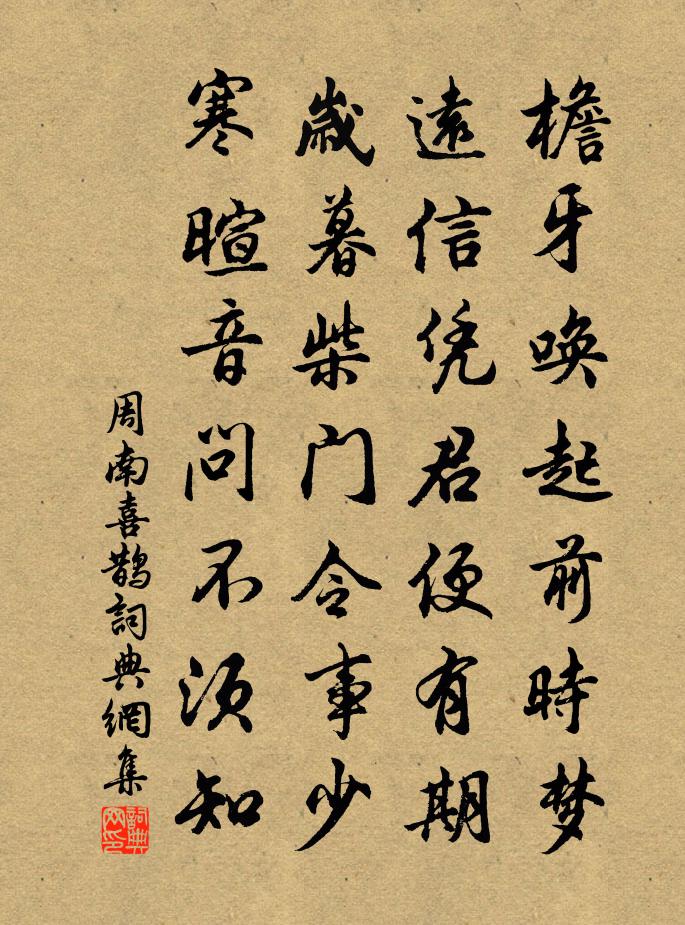 檐牙唤起前時梦
遠信凭君便有期
歲暮柴门令事少
寒暄音问不须知
周南喜鹊詞典網集
詞典网印